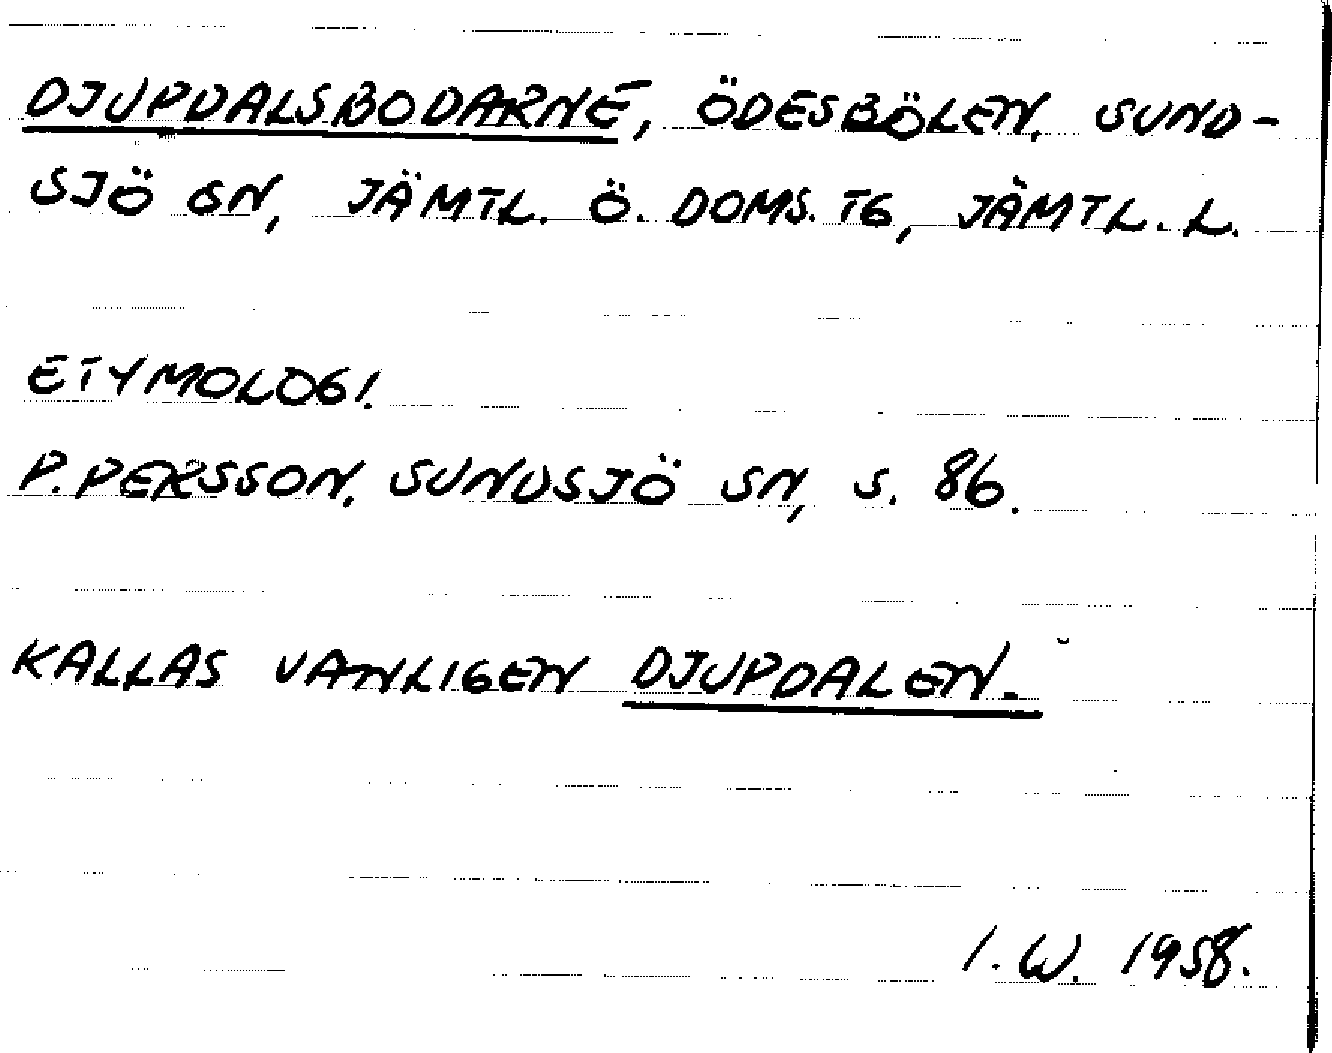 DJUPDALSBODARNE, ÖDESBÖLEN, SUND-
SJÖ SN, JÄMTL. Ö. DOMS. TG, JÄMTL. L.
ETYMOLOGI.
P. PERSSON, SUNDSJÖ SN, S. 86.
KALLAS VANLIGEN DJUPDALEN.
I. W. 1958.